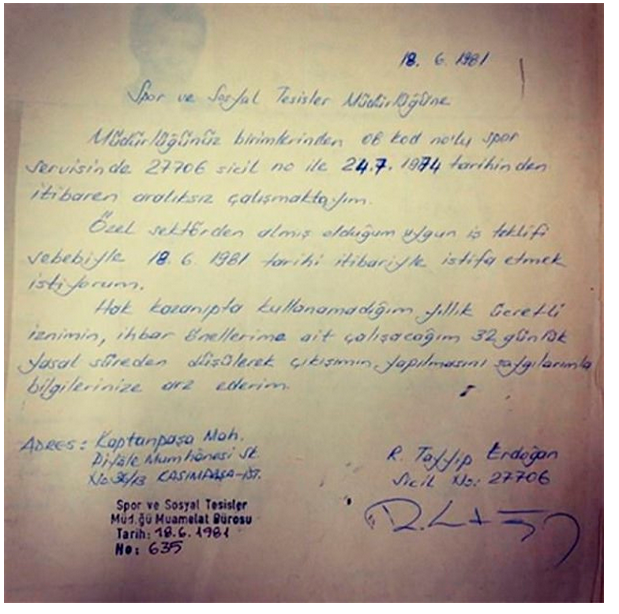 18. 6. 1981
Spor ve Sosyal Tesisler Müdürlüğüne
Müdürlüğünüz birimlerinden 06 kod no'lu spor
servisinde 27706 sicil no ile 24.7.1974 tarihinden
itibaren aralıksız çalışmaktayım.
Özel sektörden almış olduğum uygun iş teklifi
sebebiyle 18. 6. 1981 tarihi itibariyle istifa etmek
istiyorum.
Hak kazanıpta kullanamadığım yıllık ücretli
iznimin, ihbar önellerime ait çalışacağım 32 günlük
yasal süreden düşülerek çıkışımın yapılmasını saygılarımla
bilgilerinize arz ederim.
ADRES: Kaptanpaşa Mah.
Piyale Mumhanesi Sk.
No: 36/13 KASIMPAŞA-İST.
R. Tayyip Erdoğan
Sicil No: 27706
Spor ve Sosyal Tesisler
Müd.ğü Muamelat Bürosu
Tarih: 18.6.1981
No: 635